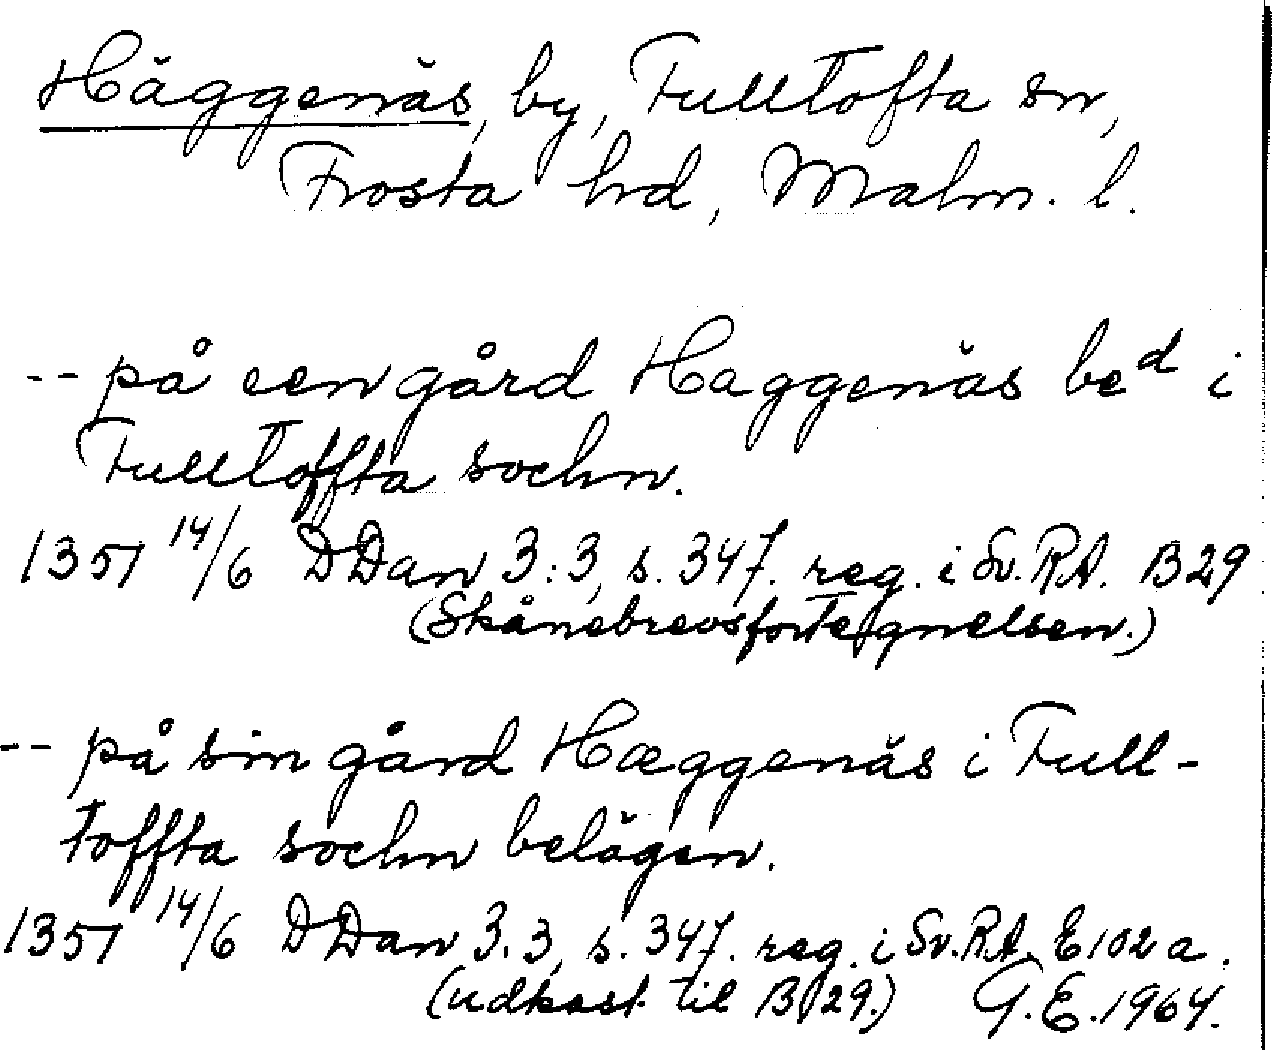 Häggenäs, by, Fulltofta sn,
Frosta hd, Malm. l.
-- på een gård Haggenäs beᵈ i
Fulltoffta sochn.
1351 14/6 DDan 3:3, s. 347. reg. i Sv. RA. B29
(Skånebrevsfortegnelsen.)
-- på sin gård Hæggenäs i Full-
toffta sochn belägen.
1351 14/6 DDan 3.3, s. 347. reg. i Sv. RA. E102a.
(udkast til B 29.) G.E. 1964.